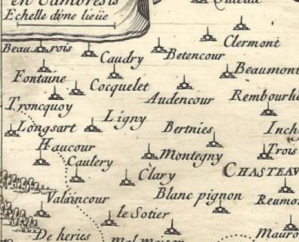 en Cambresis
Echelle d'une lieüe
Clermont
Beau rois
Caudry
Betencour
Beaumont
Fontaine
Cocquelet
Audencour
Rembourh
Troncquoy
Ligny
Longsart
Bertnies
Inch
Haucour
Montegny
Trois
Caulery
Clary
CHASTEAV
Valaincour
Blanc pignon
Reumo
le Sotier
De heries
Mauro